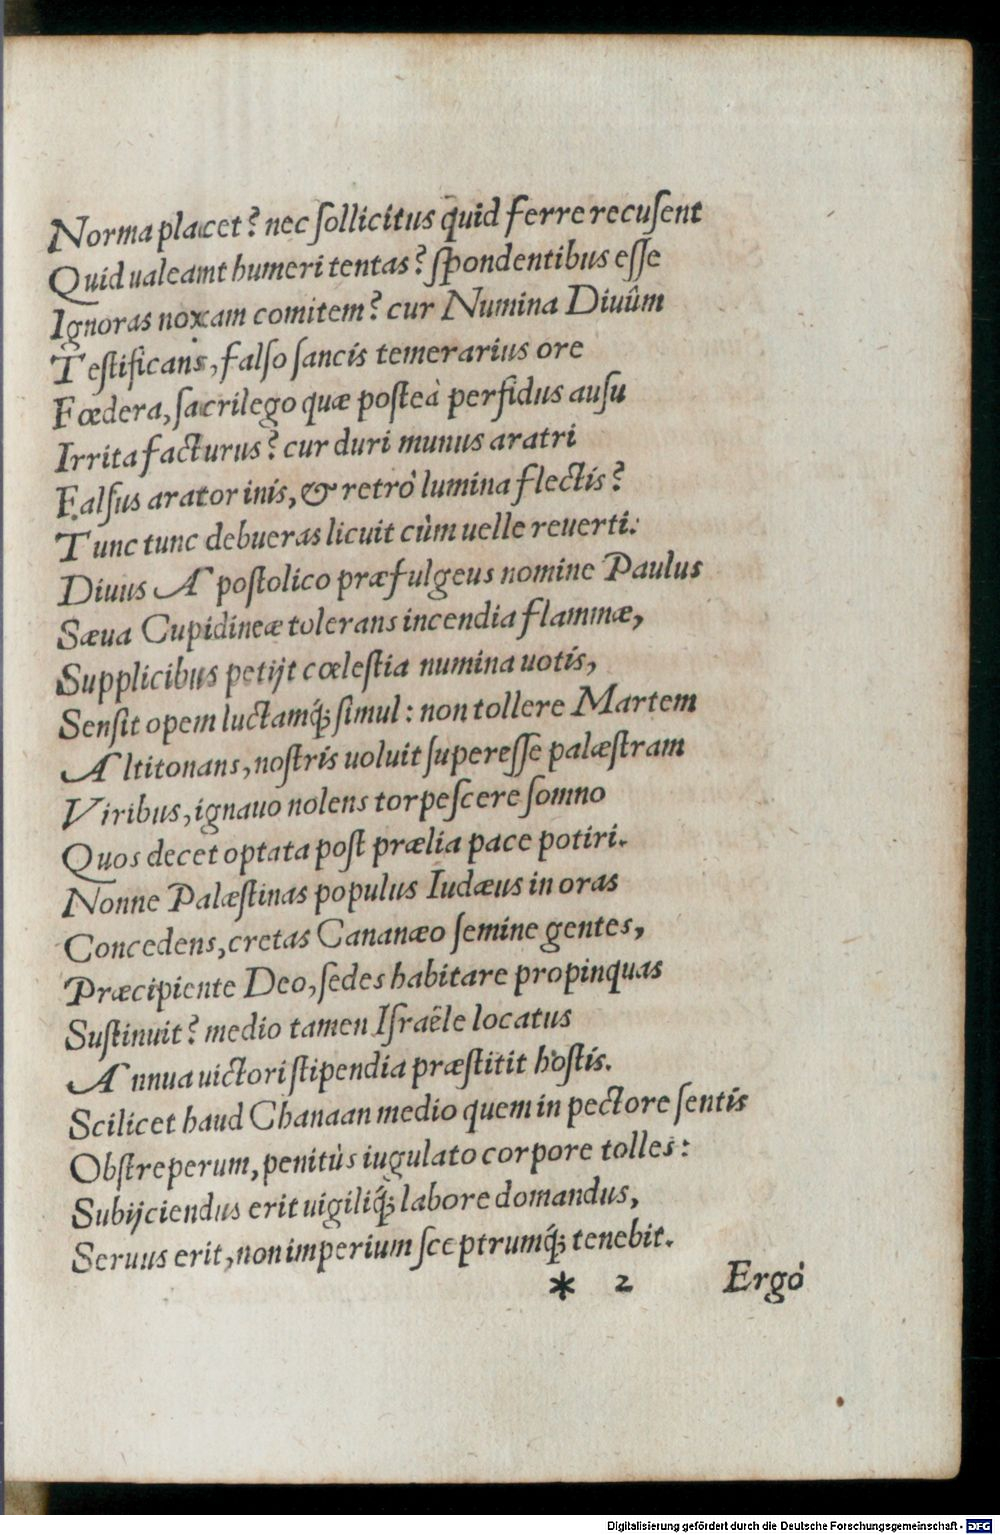 Norma placet? nec ſollicitus quid ferre recuſent
Quid ualeamt humeri tentas? ſpondentibus eſſe
Ignoras noxam comitem? cur Numina Diuûm
Teſtificans, falſo ſancis temerarius ore
Fœdera, ſacrilego quæ poſteà perfidus auſu
Irrita facturus? cur duri munus aratri
Falſus arator inis, & retrò lumina flectis?
Tunc tunc debueras licuit cùm uelle reuerti:
Diuus Apoſtolico præfulgeus nomine Paulus
Sæua Cupidineæ tolerans incendia flammæ,
Supplicibus petijt cœleſtia numina uotis,
Senſit opem luctamq́; ſimul: non tollere Martem
Altitonans, noſtris uoluit ſupereſſe palæſtram
Viribus, ignauo nolens torpeſcere ſomno
Quos decet optata poſt prælia pace potiri.
Nonne Palæſtinas populus Iudæus in oras
Concedens, cretas Cananæo ſemine gentes,
Præcipiente Deo, ſedes habitare propinquas
Suſtinuit? medio tamen Iſraële locatus
Annua uictori ſtipendia præſtitit hoſtis.
Scilicet haud Chanaan medio quem in pectore ſentis
Obſtreperum, penitùs iugulato corpore tolles:
Subijciendus erit uigiliq́; labore domandus,
Seruus erit, non imperium ſceptrumq́; tenebit.
* 2 Ergò
Digitalisierung gefördert durch die Deutsche Forschungsgemeinschaft - DFG